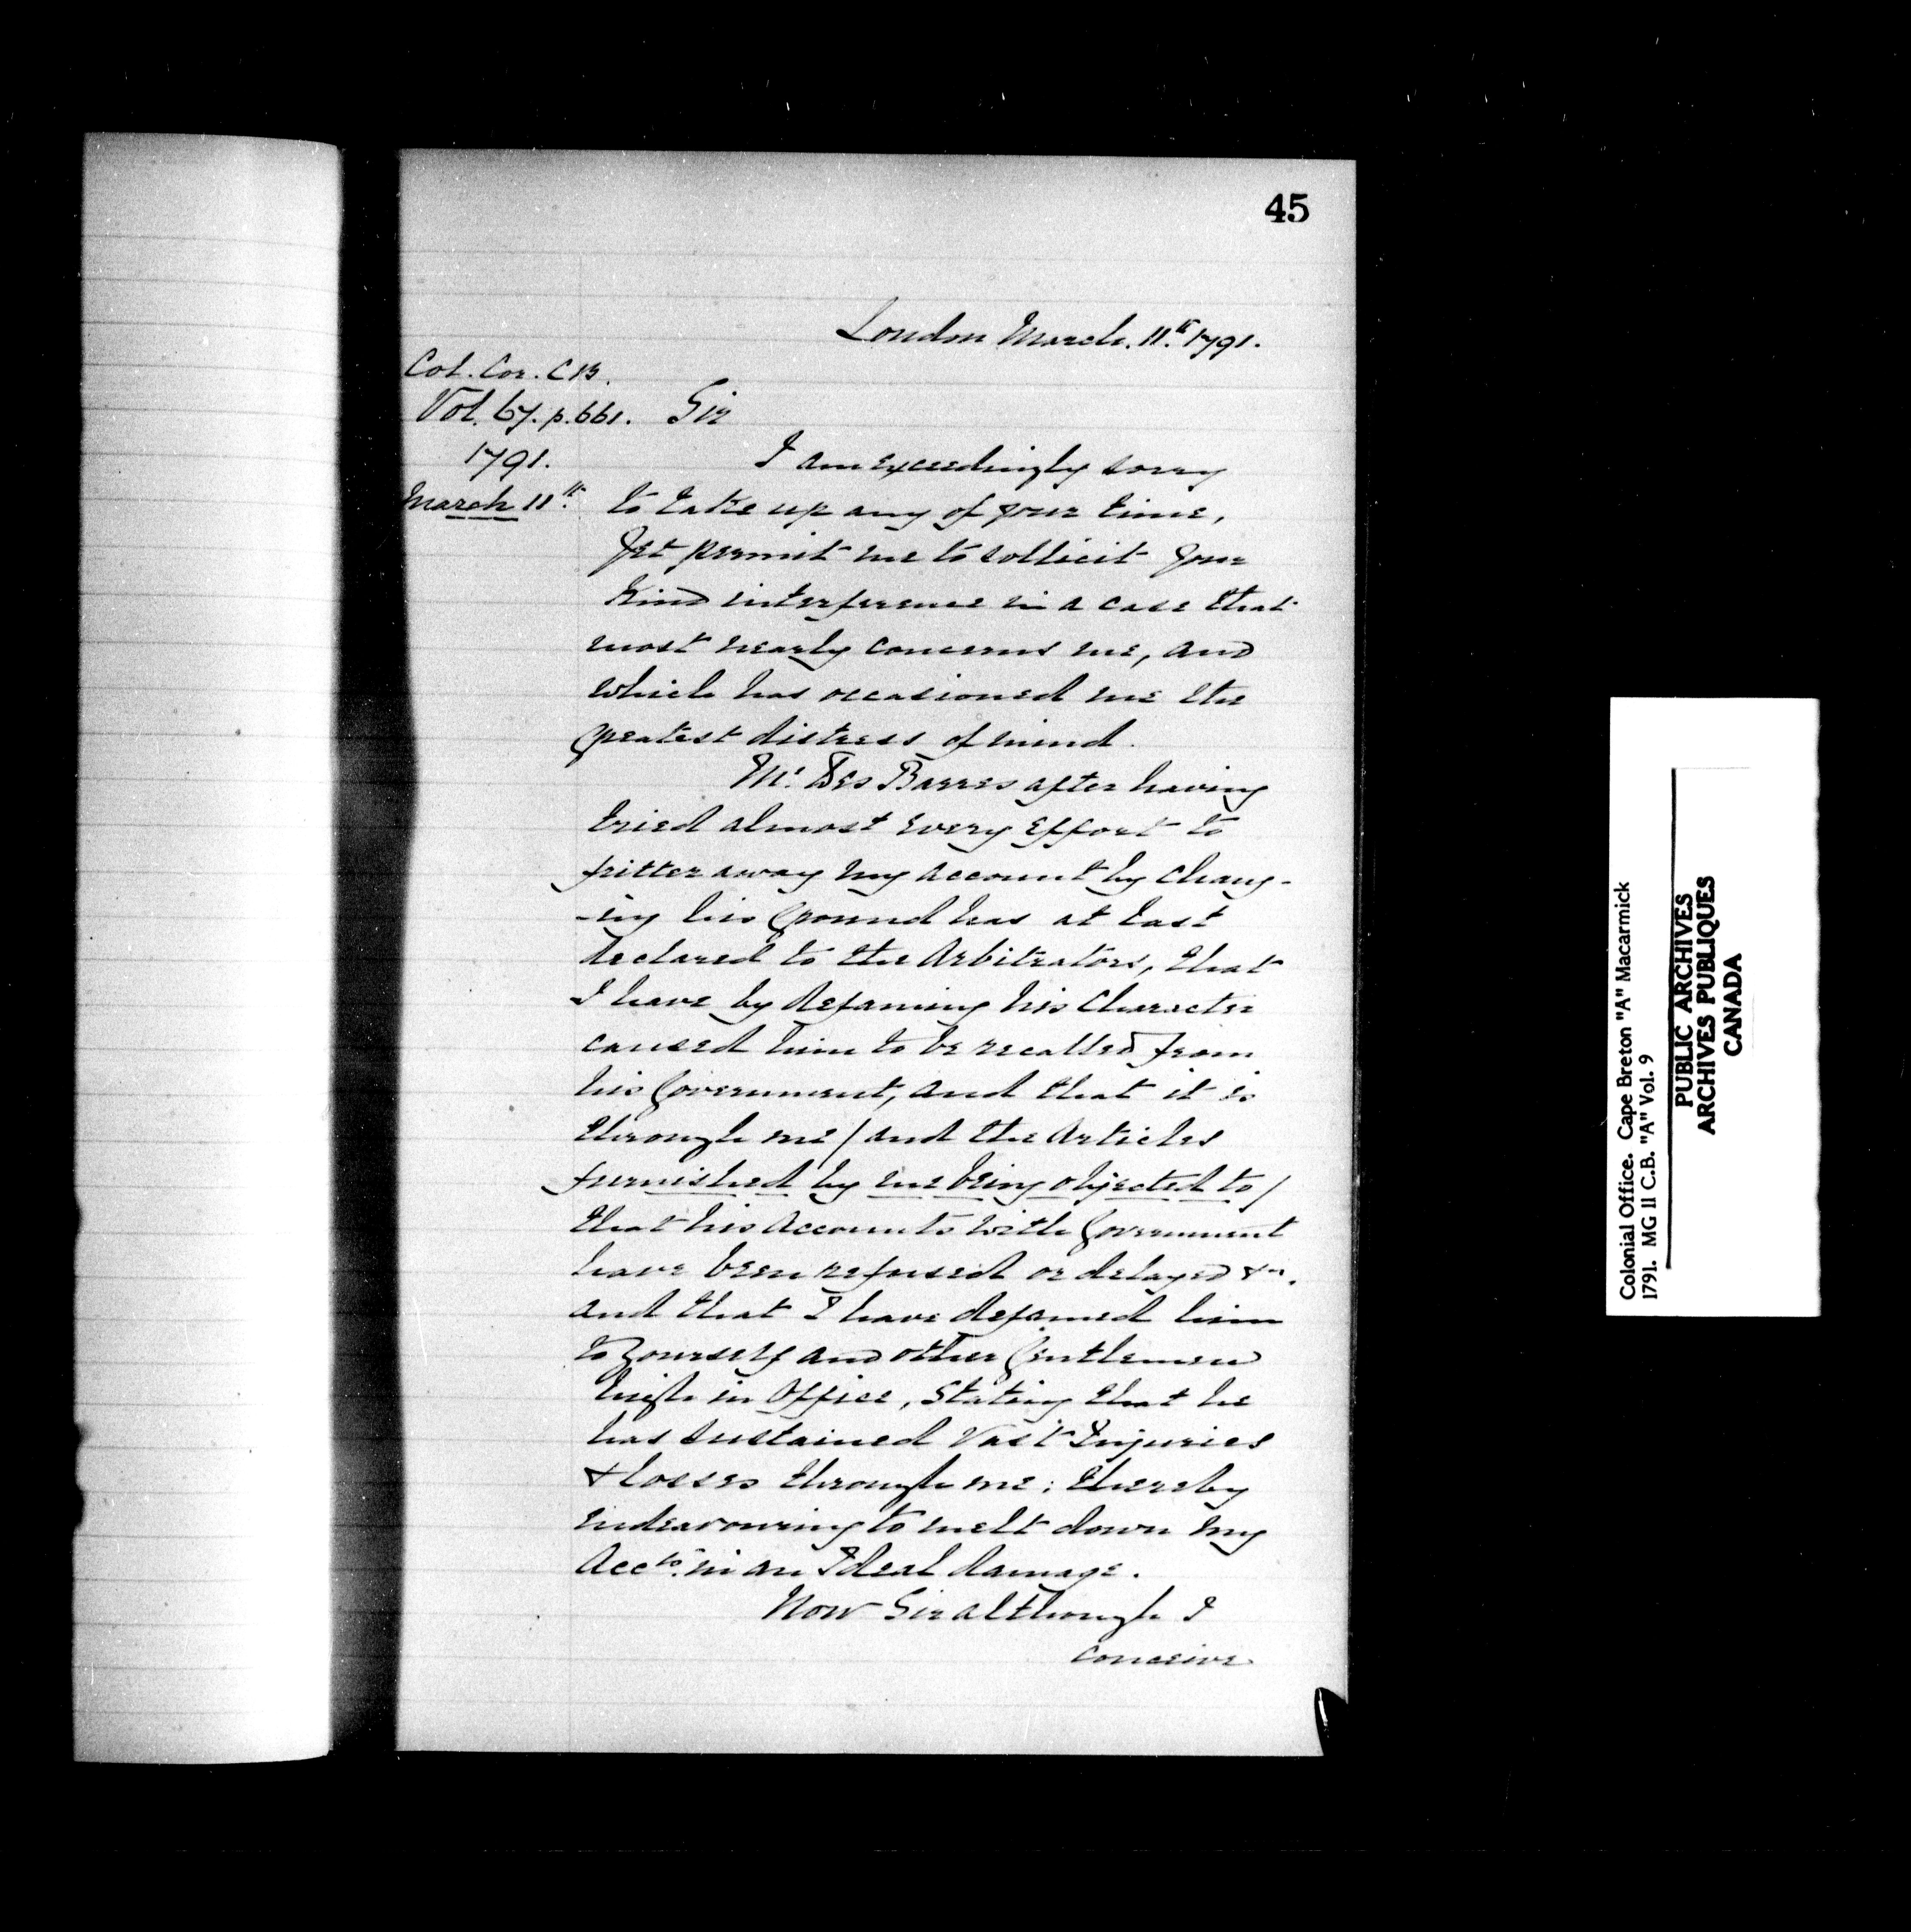 45
London March. 11th. 1791.
Col. Cor. C B.
Vol. 67. p. 661.
1791.
March 11th.
Sir
I am exceedingly sorry
to take up any of your time,
yet permit me to sollicit your
kind interference in a case that
most nearly concerns me, and
which has occasioned me the
greatest distress of mind.
Mr. Des Barres after having
tried almost every effort to
fritter away my account by chang-
-ing his ground has at last
declared to the Arbitrators, that
I have by defaming his Character
caused him to be recalled from
his Government, and that it is
through me / and the Articles
furnished by me being objected to /
that his Accounts with Government
have been refused or delayed &c.
and that I have defamed him
to yourself and other Gentlemen
high in Office, Stating that he
has sustained Vast Injuries
& losses through me; thereby
endeavouring to melt down my
Accts. in an Ideal damage.
Now Sir although I
conceive
Colonial Office. Cape Breton "A" Macarmick
1791. MG 11 C.B. "A" Vol. 9
PUBLIC ARCHIVES
ARCHIVES PUBLIQUES
CANADA